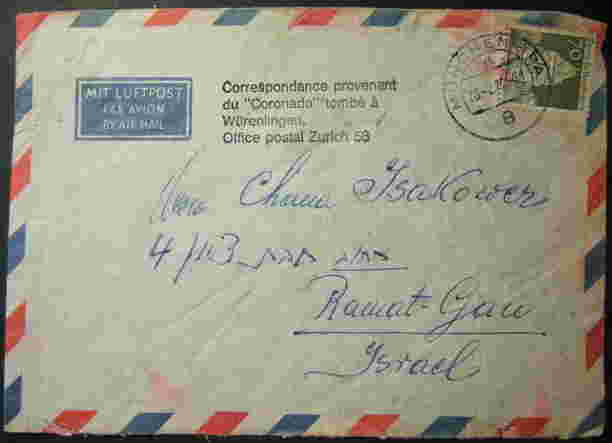 MIT LUFTPOST
PAR AVION
BY AIR MAIL
Correspondance provenant
du "Coronado" tombé à
Würenlingen.
Office postal Zurich 58
MÜNCHEN
8
Chana Isakower
4/
Ramat-Gan
Israel